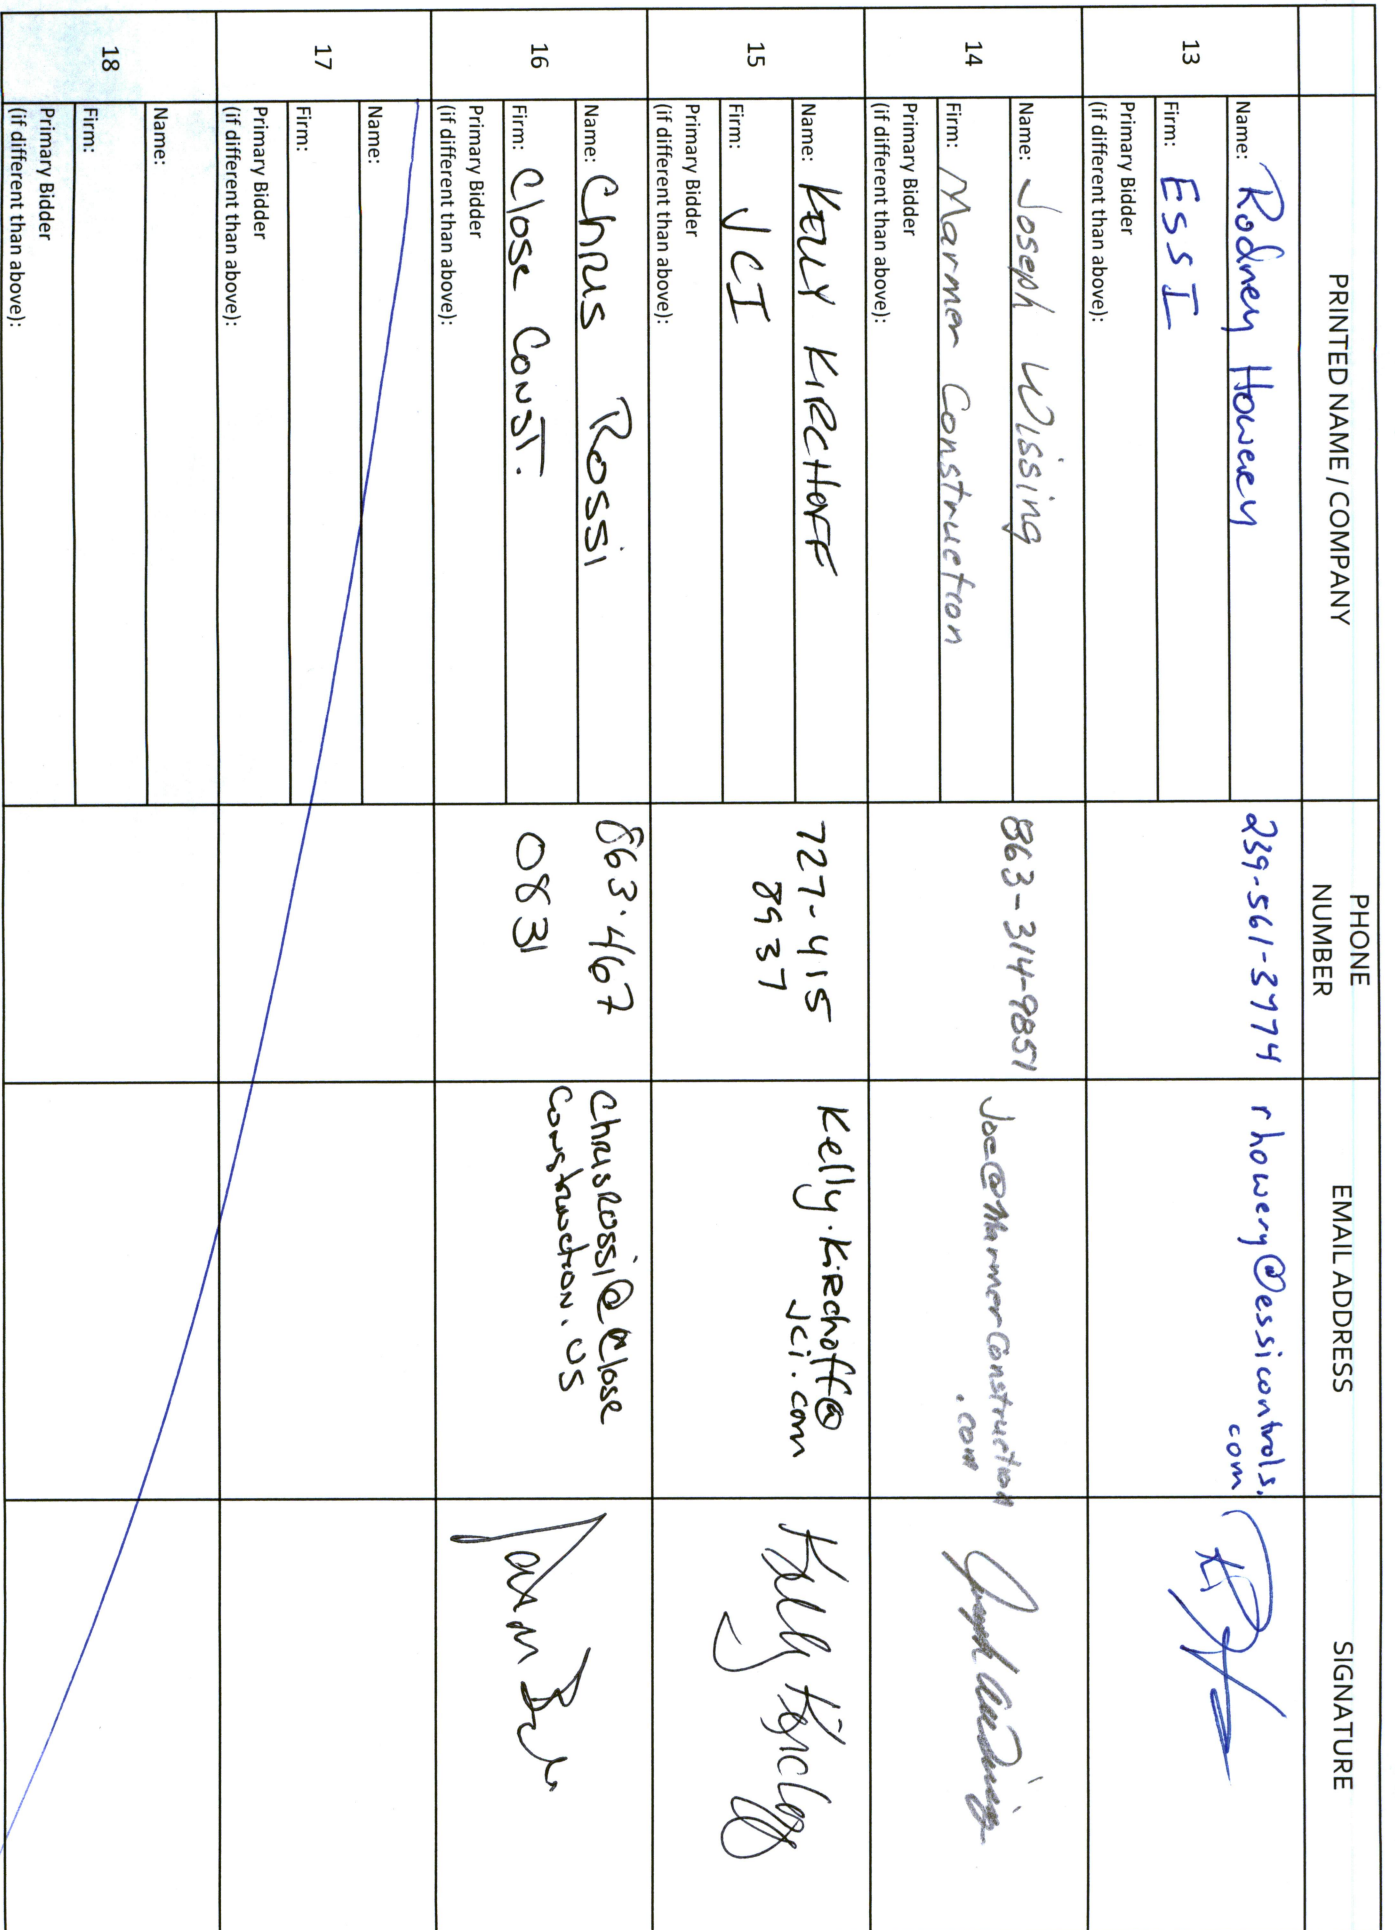 PRINTED NAME / COMPANY
PHONE
NUMBER
EMAIL ADDRESS
SIGNATURE
13
Name: Rodney Howery
Firm: ESSI
Primary Bidder
(if different than above):
239-561-3774
rhowery@essicontrols.
com
14
Name: Joseph Wissing
Firm: Marmer Construction
Primary Bidder
(if different than above):
863-314-9851
Joe@MarmerConstruction
.com
Joseph Wissing
15
Name: KELLY KIRCHOFF
Firm: JCI
Primary Bidder
(if different than above):
727-415
8937
Kelly.Kirchoff@
jci.com
Kelly Kirchoff
16
Name: Chris Rossi
Firm: Close Const.
Primary Bidder
(if different than above):
863.467
0831
ChrisRossi@Close
Construction.US
17
Name:
Firm:
Primary Bidder
(if different than above):
18
Name:
Firm:
Primary Bidder
(if different than above):